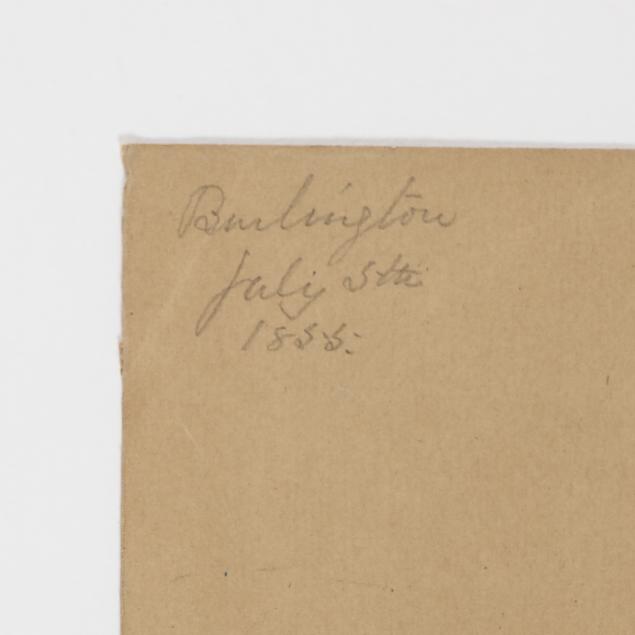 Burlington
July 5th
1855.